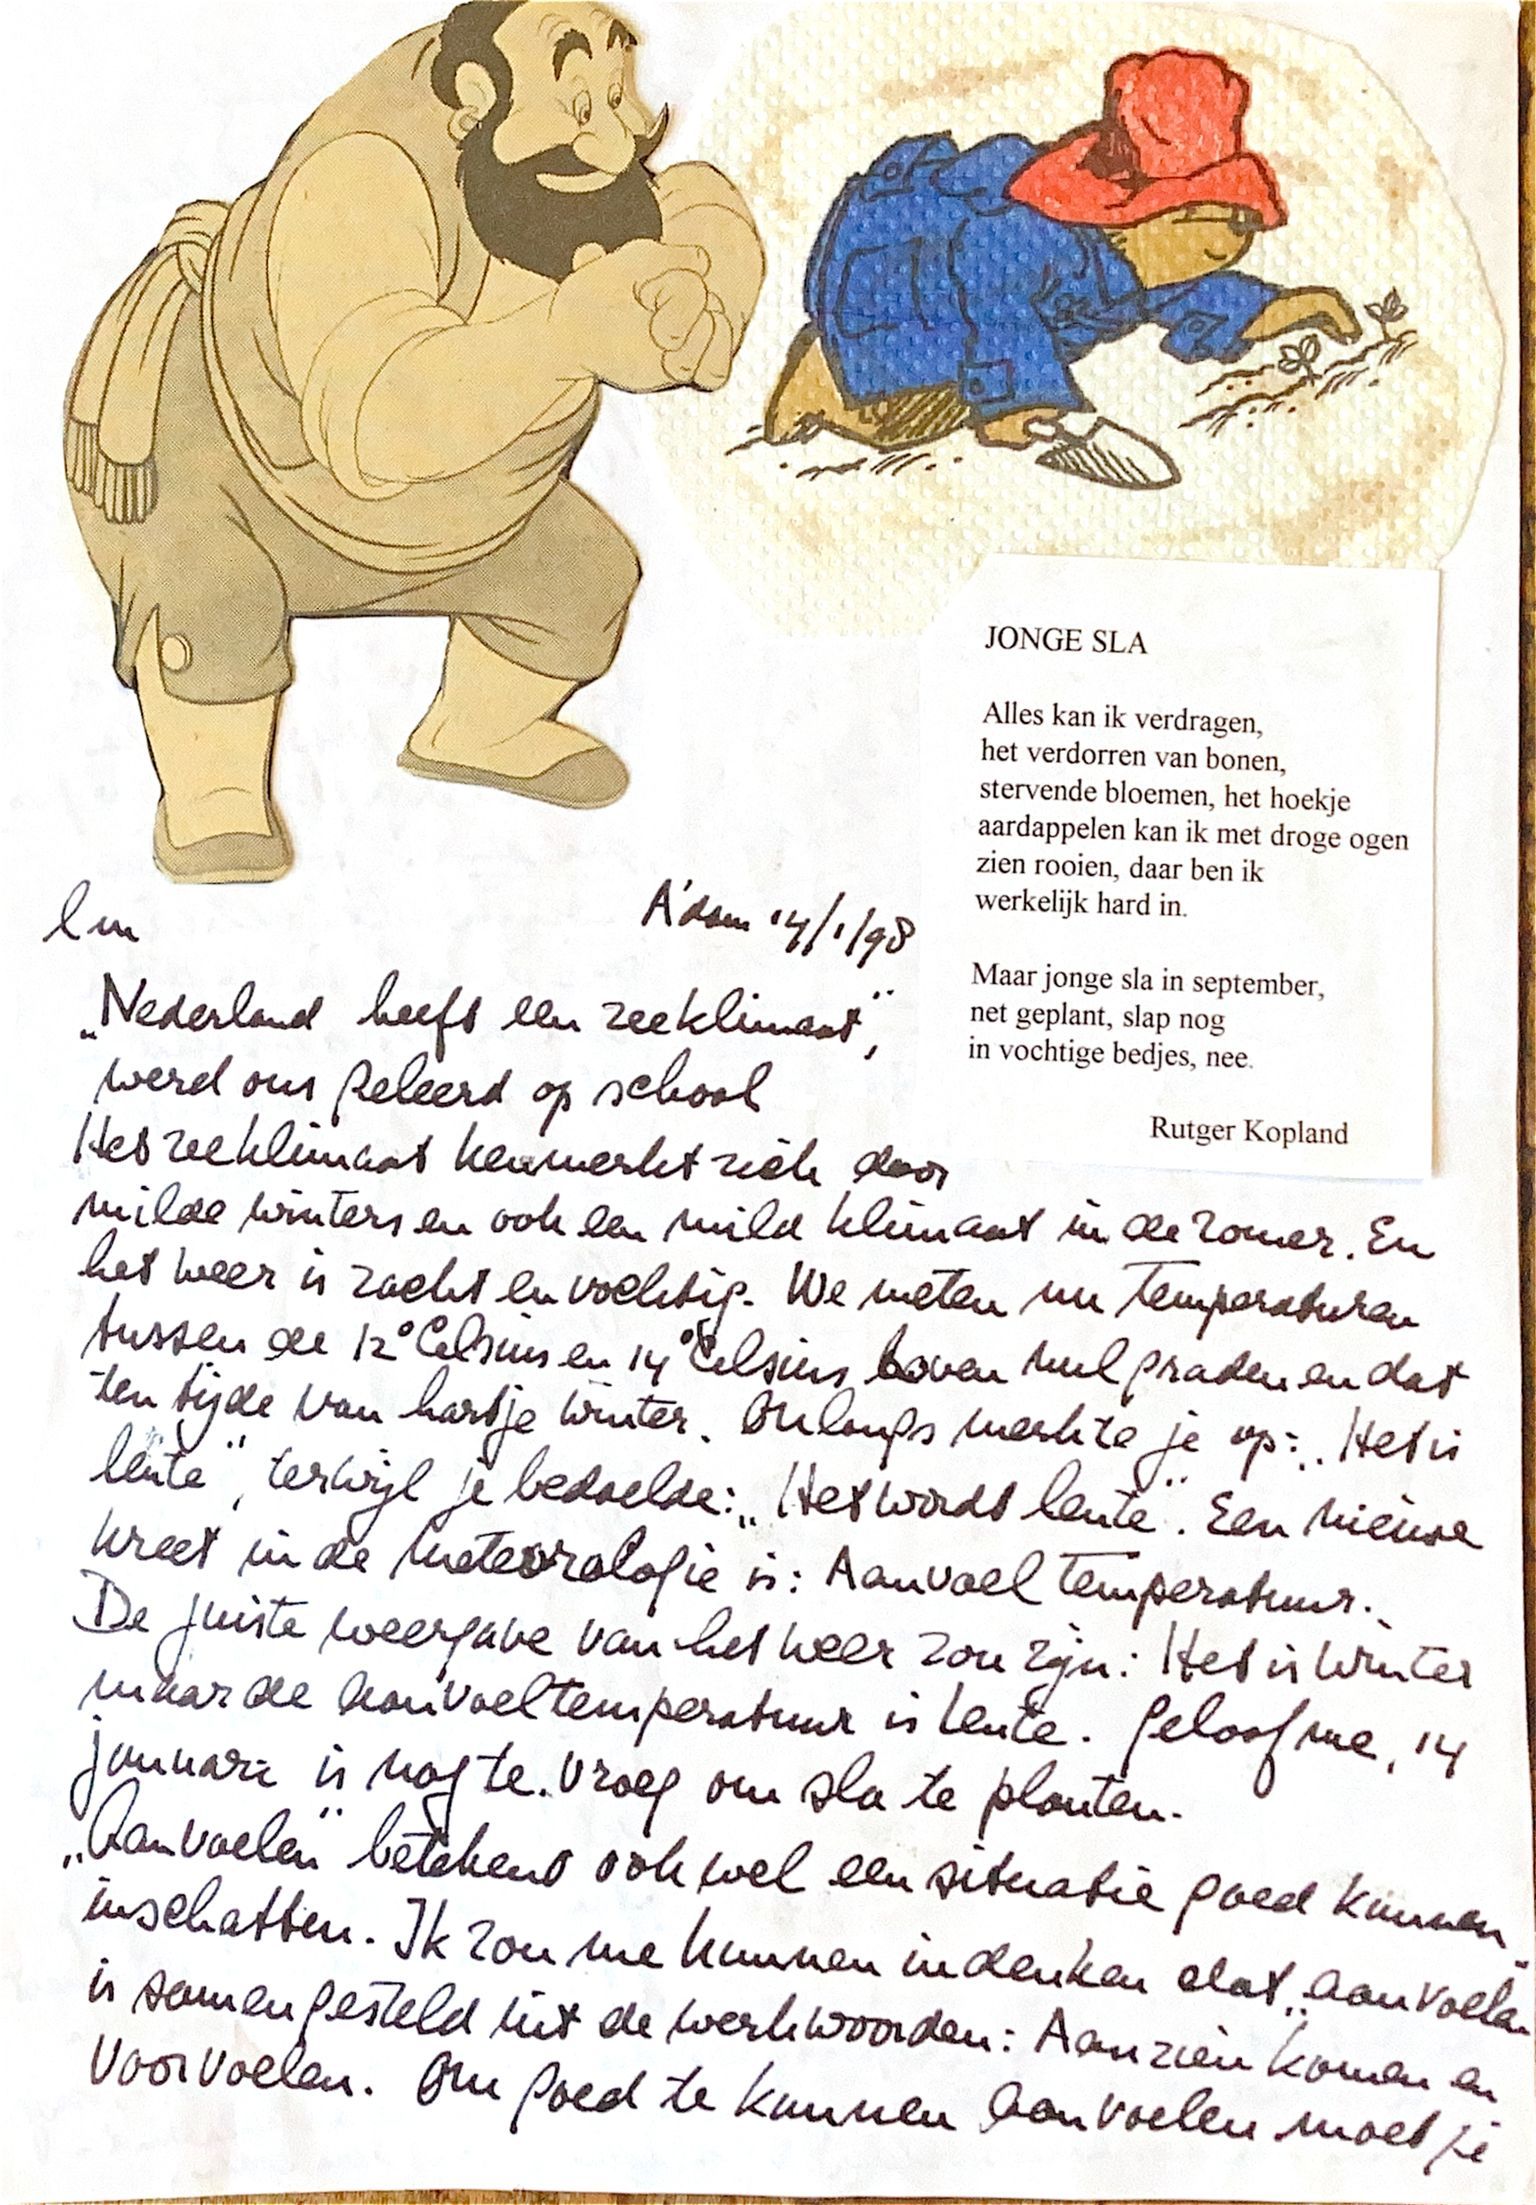 JONGE SLA
Alles kan ik verdragen,
het verdorren van bonen,
stervende bloemen, het hoekje
aardappelen kan ik met droge ogen
zien rooien, daar ben ik
werkelijk hard in.
Maar jonge sla in september,
net geplant, slap nog
in vochtige bedjes, nee.
Rutger Kopland
A'dam 14/1/98
„Nederland heeft een zeeklimaat”,
werd ons geleerd op school
Het zeeklimaat kenmerkt zich door
milde winters en ook een mild klimaat in de zomer. En
het weer is zacht en vochtig. We meten nu temperaturen
tussen de 12° Celsius en 14° Celsius boven nul graden en dat
ten tijde van hartje winter. Onlangs merkte je op: „Het is
lente”, terwijl je bedoelde: „Het wordt lente”. Een nieuwe
kreet in de meteorologie is: Aanvoel temperatuur.
De juiste weergave van het weer zou zijn: Het is winter
maar de aanvoeltemperatuur is lente. Geloof me, 14
januari is nog te vroeg om sla te planten.
„Aanvoelen” betekend ook wel een situatie goed kunnen
inschatten. Ik zou me kunnen indenken dat „aanvoelen”
is samengesteld uit de werkwoorden: Aanzien komen en
Voorvoelen. Om goed te kunnen aanvoelen moet je